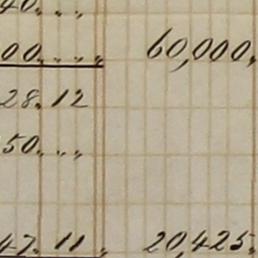 40. „ „
00. „ „ „ 60,000„
28. 12
50. „ „
47. 11 „ 20,425„